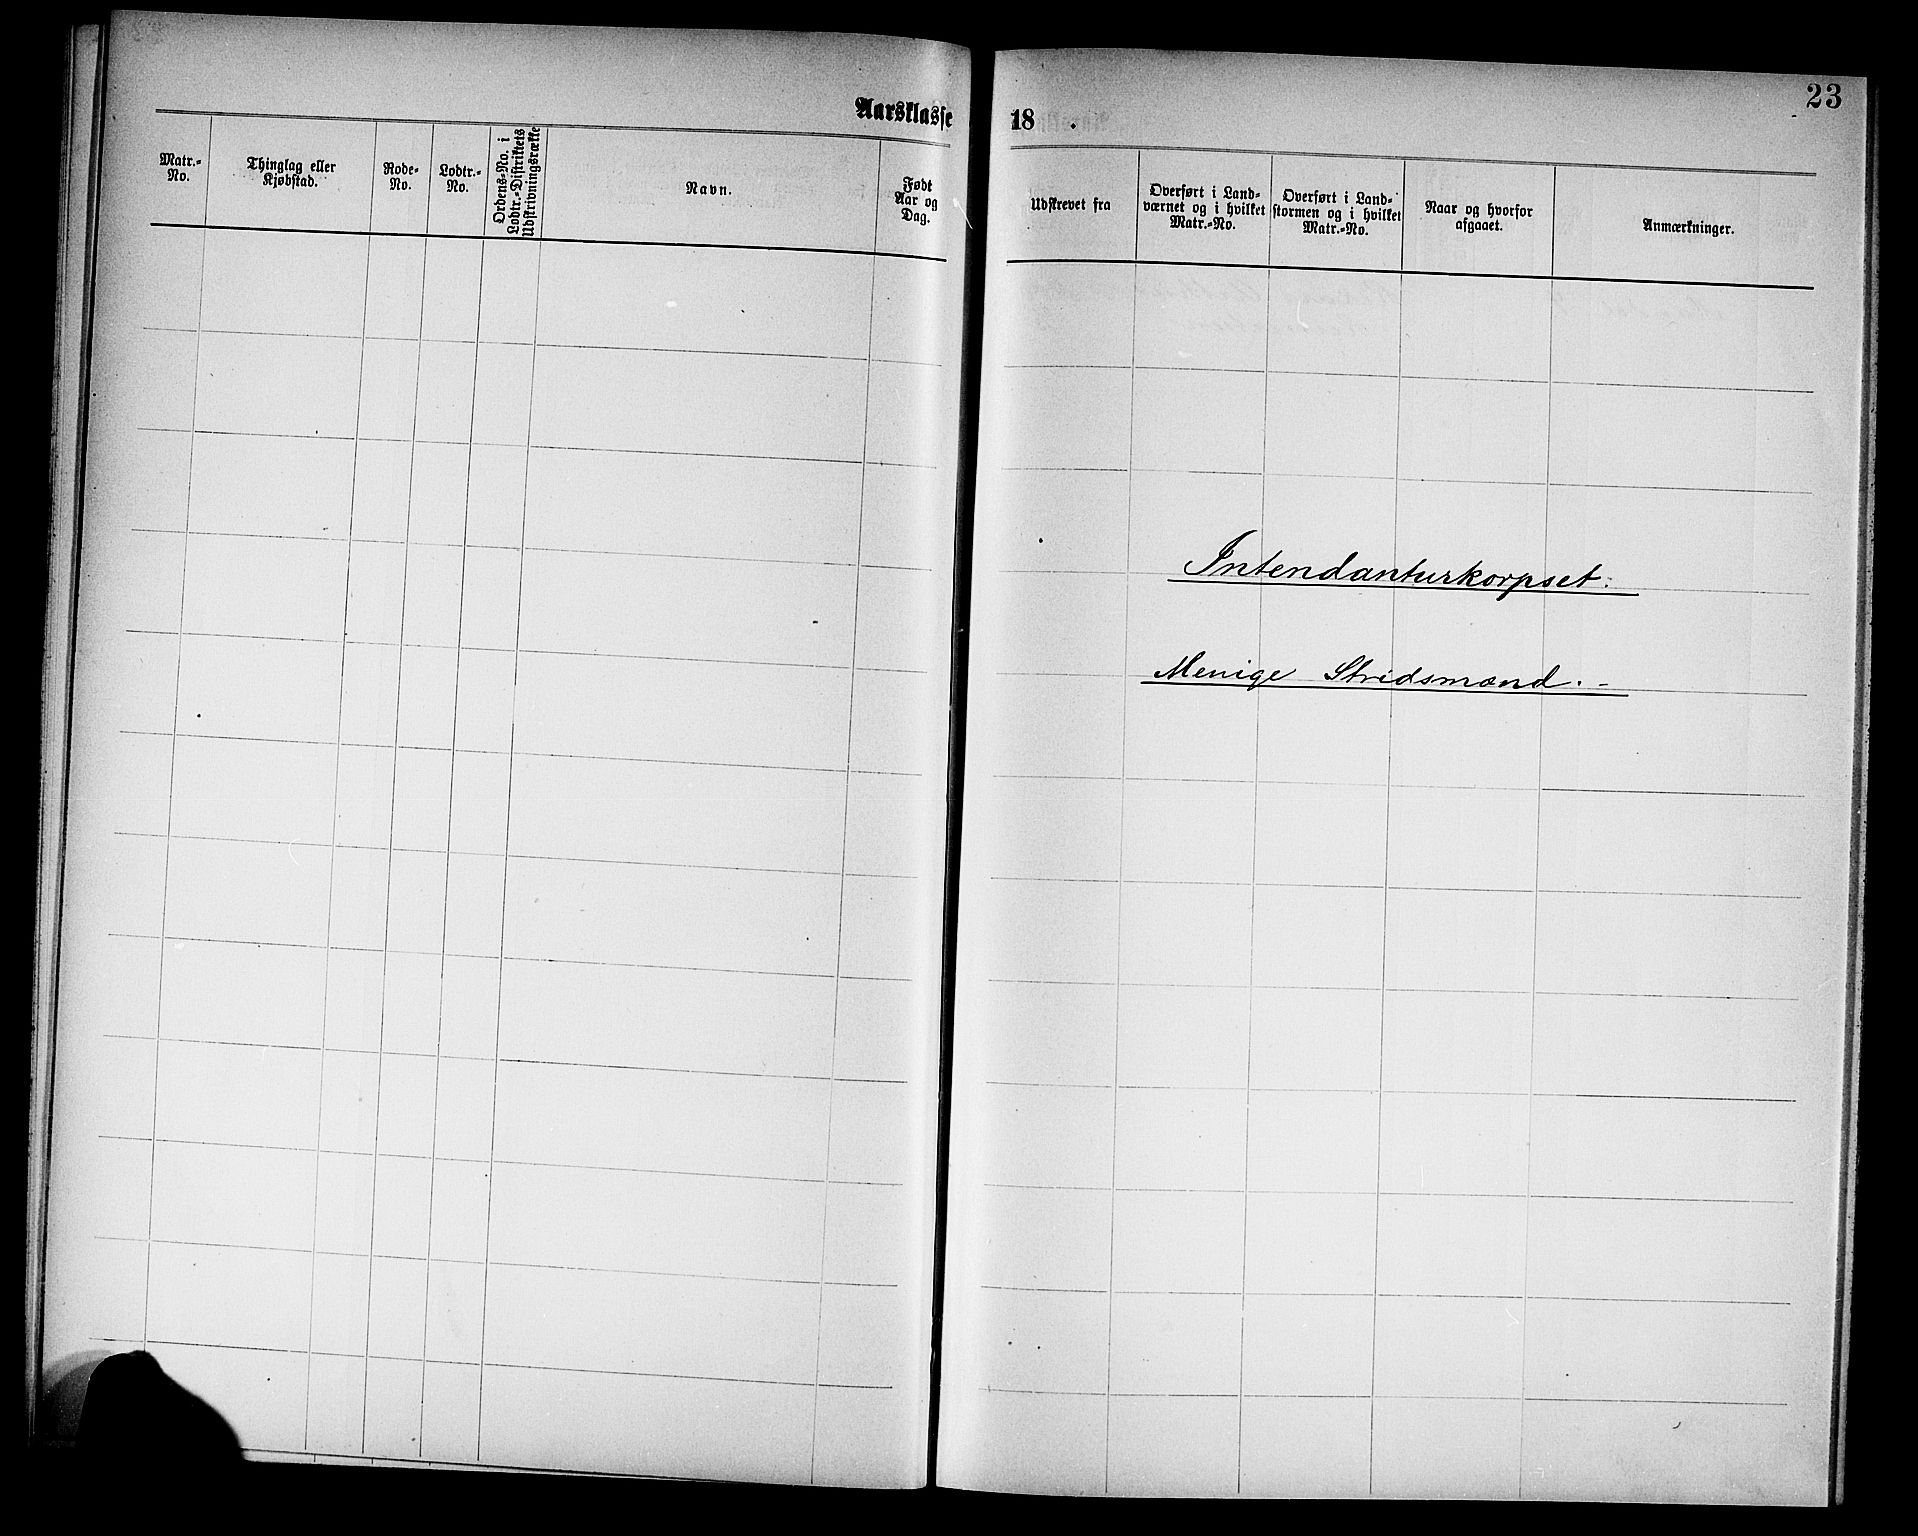 23
Aarsklasse 18 .
Matr.-
No.
Thinglag eller
Kjøbstad.
Rode-
No.
Lodtr.-
No.
Ordens-No. i
Lodtr.-Distriktets
Udskrivningsrække
Navn.
Født
Aar og
Dag.
Udskrevet fra
Overført i Land-
værnet og i hvilket
Matr.-No.
Overført i Land-
stormen og i hvilket
Matr.-No.
Naar og hvorfor
afgaaet.
Anmærkninger.
Intendanturkorpset.
Menige Stridsmænd. -